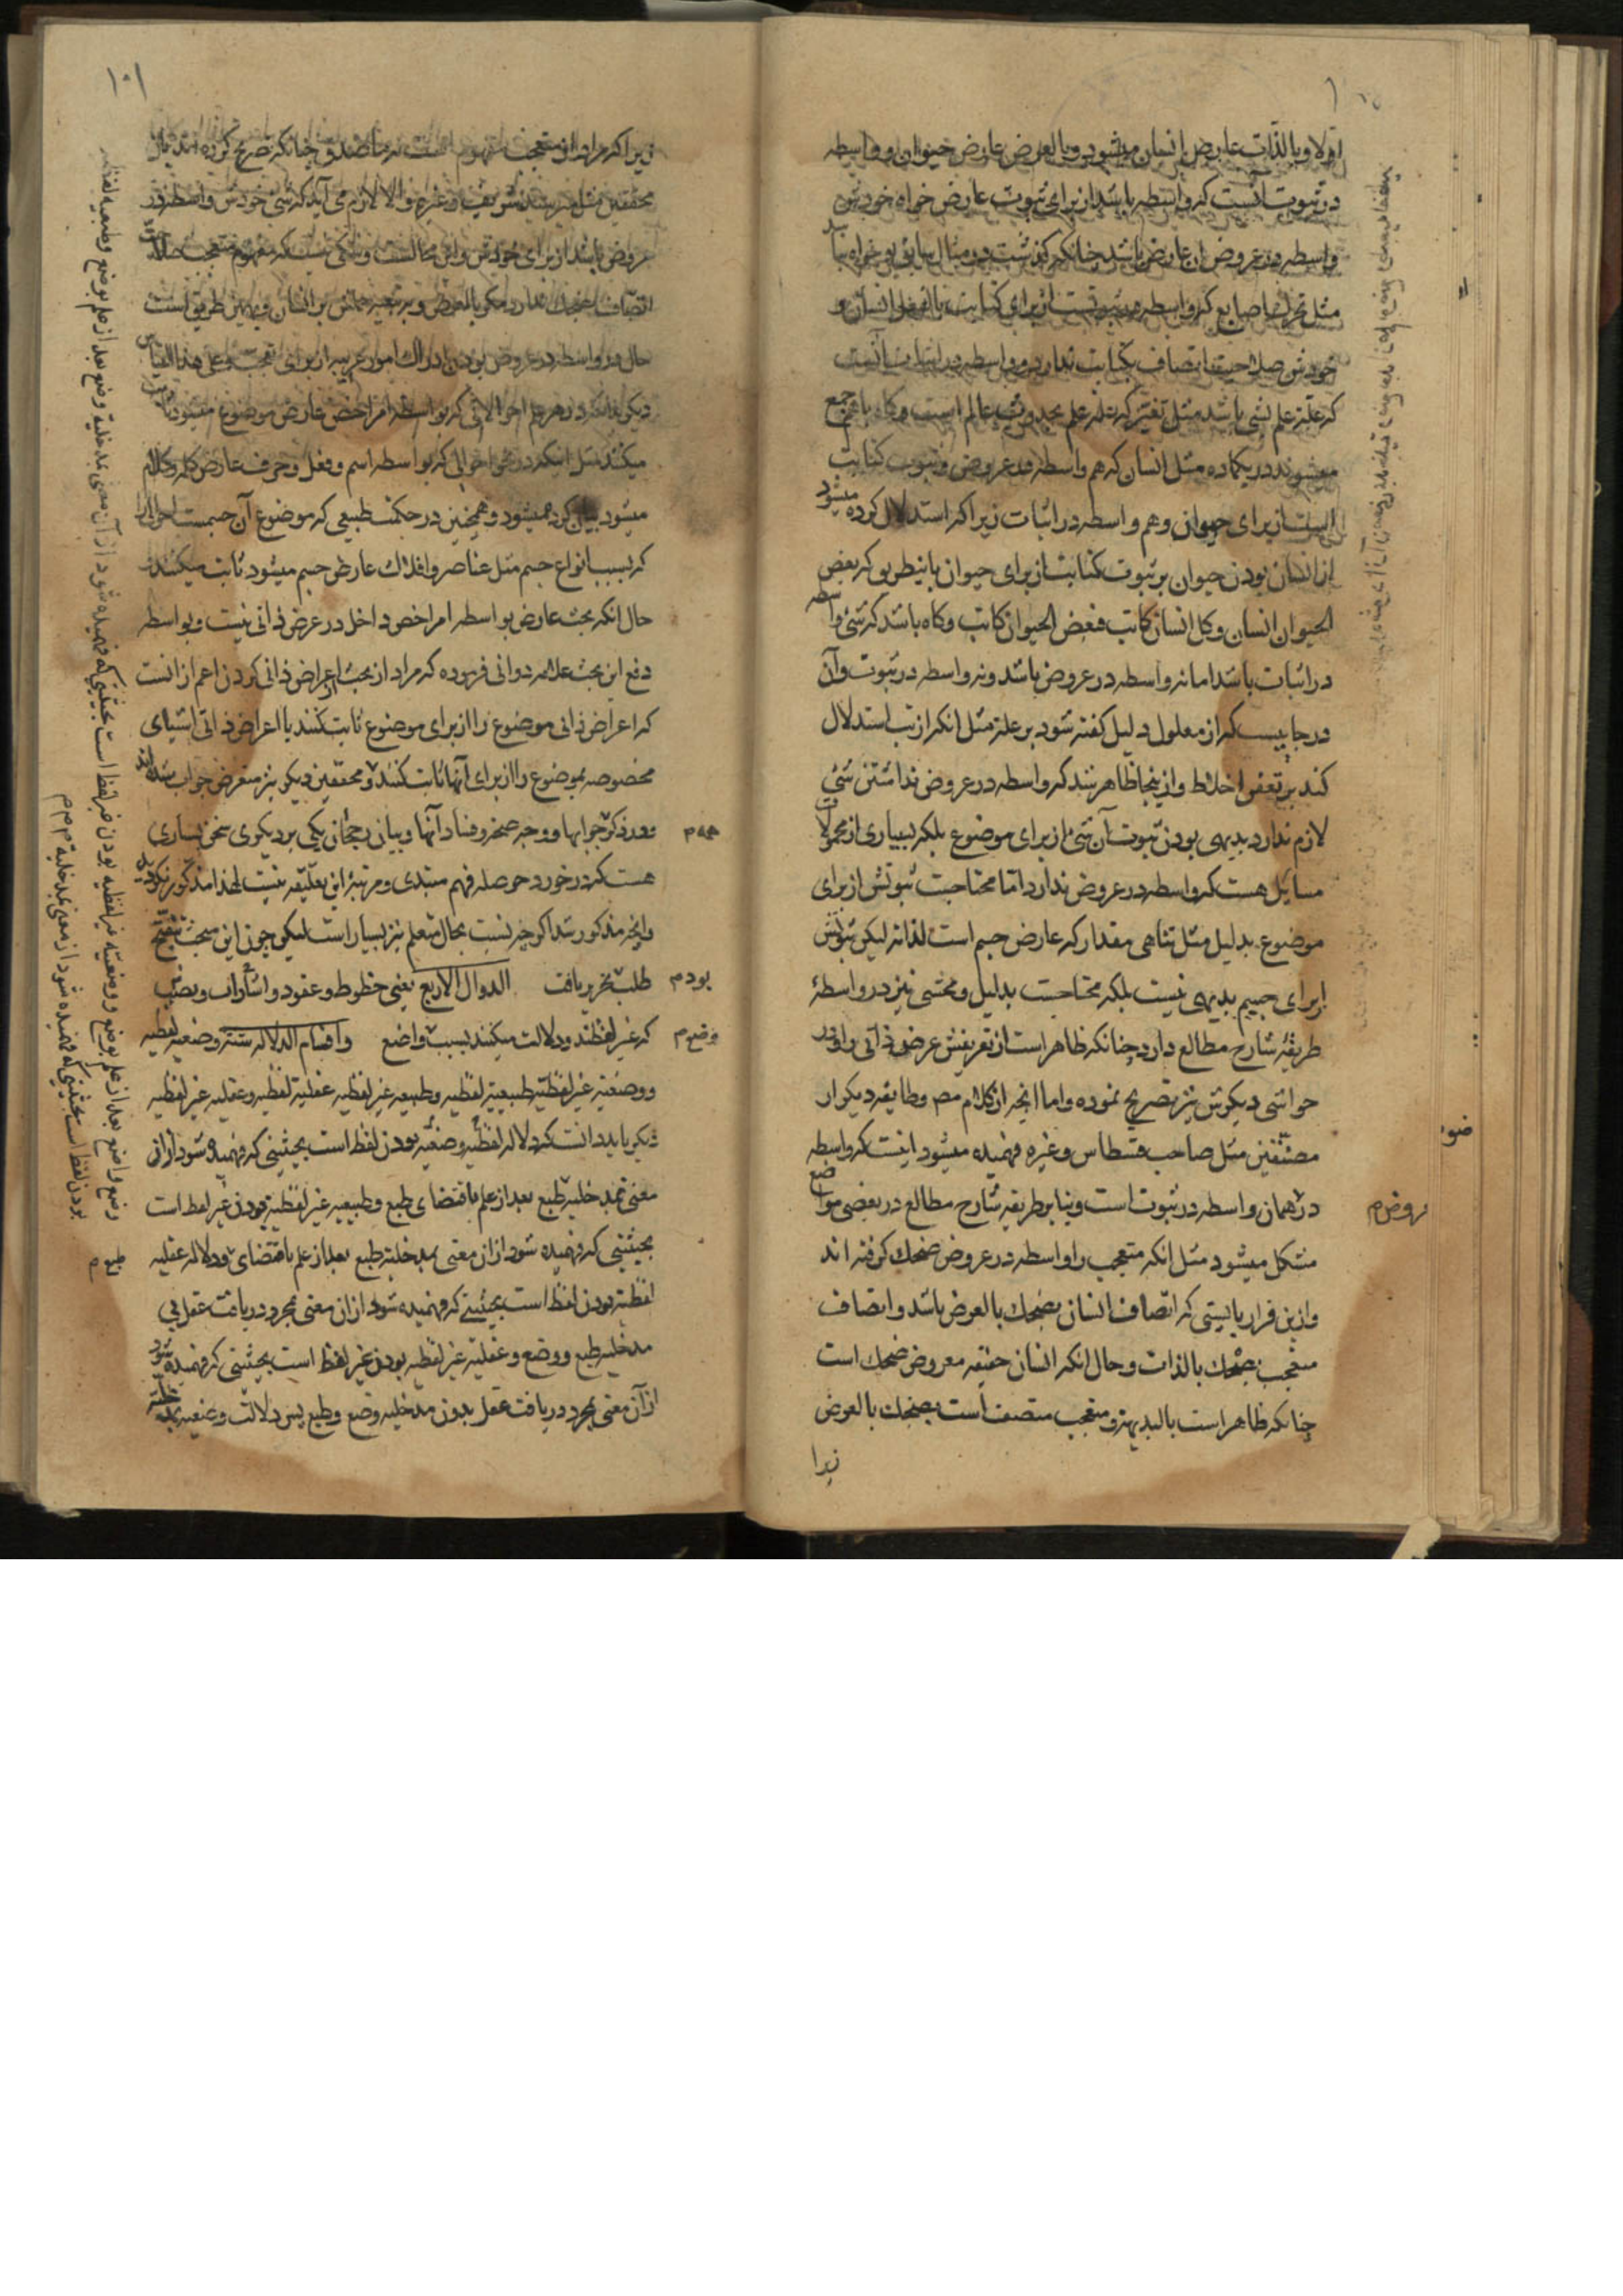 اولا و بالذات عارض انسان میشود و بالعرض عارض حیوان و واسطه
در ثبوت آنست که واسطه باشد از برای ثبوت عارض خواه خودش
واسطه در عروض آن عارض باشد چنانکه گذشت در مثال سابق و خواه نباشد
مثل تحریک اصابع که واسطه در ثبوتست از برای کتابت بالفعل انسان و
خودش صلاحیت اتصاف بکتابت ندارد و واسطه در اثبات آنست
که علة علم بشی باشد مثل تغیر که علة علم بحدوث عالم است و کاه باهم جمع
میشوند در یکماده مثل انسان که هم واسطه در عروض و ثبوت کتابت
است از برای حیوان و هم واسطه در اثبات زیرا که استدلال کرده میشود
از انسان بودن حیوان بر ثبوت کتابت از برای حیوان باینطریق که بعض
الحیوان انسان و کل انسان کاتب فبعض الحیوان کاتب و کاه باشد که شئ واسطه
در اثبات باشد اما نه واسطه در عروض باشد و نه واسطه در ثبوت و آن
در جاییست که از معلول دلیل گفته شود بر علة مثل انکه از تب استدلال
کند بر تعفن اخلاط و از ینجا ظاهر شد که واسطه در عروض نداشتن شئ
لازم ندارد بدیهی بودن ثبوت آن شئ از برای موضوع بلکه بسیاری از محمولات
مسایل هست که واسطه در عروض ندارد اما محتاجست ثبوتش از برای
موضوع بدلیل مثل تناهی مقدار که عارض جسم است لذاته لیکن ثبوتش
از برای جسم بدیهی نیست بلکه محتاجست بدلیل و محشی نیز در واسطهٔ
طریقهٔ شارح مطالع دارد چنانکه ظاهر است از تعریفش عرض ذاتی را و در
حواشی دیکرش نیز تصریح نموده و اما انچه از کلام مصـ و طایفه دیکر از
مصنفین مثل صاحب قسطاس و غیره فهمیده میشود اینست که واسطه
در همان واسطه در ثبوت است و بنا بر طریقه شارح مطالع در بعضی مواضع
عروض م
مشکل میشود مثل انکه متعجب را واسطه در عروض ضحک کرفته اند
و ازین قرار بایستی که اتصاف انسان بضحک بالعرض باشد و اتصاف
متعجب بضحک بالذات و حال انکه انسان حقیقه معروض ضحک است
چنانکه ظاهر است بالبدیهة و متعجب متصف است بضحک بالعرض
زیرا
۱۰۱
زیرا که مراد از متعجب مفهوم است نه ما صدق چنانکه تصریح کرده اند بآن
محققین مثل میر سید شریف و غیره و الا لازم می آید که شئ خودش واسطه در
عروض باشد از برای خودش و این محالست و شکی نیست که مفهوم متعجب صلاحیت
اتصاف بضحک ندارد مکر بالعرض و بر تبعیه حملش بر انسان و بهمین طریق است
حال در واسطه در عروض بودن ادراک امور غریبه از برای تعجب و علی هذا القیاس
دیکر بدانکه در هر علم احوالاتی که بواسطه امر اخص عارض موضوع میشود
میکنند مثل اینکه در نحو احوالی که بواسطه اسم و فعل و حرف عارض کلمه و کلام
میشود بیان کرده میشود و همچنین در حکمت طبیعی که موضوع آن جسمست احوالی را
که بسبب انواع جسم مثل عناصر و افلاک عارض جسم میشود ثابت میکنند
حال انکه بحث عارض بواسطه امر اخص داخل در عرض ذاتی نیست و بواسطه
دفع این بحث علامه دوانی فرموده که مراد از بحث از اعراض ذاتی کردن اعم از انست
که اعراض ذاتی موضوع را از برای موضوع ثابت کنند یا اعراض ذاتی اشیای
مخصوصه بموضوع را از برای آنها ثابت کنند و محققین دیکر نیز متعرض جواب شده اند
و در ذکر جوابها و وجه صحة و فساد آنها و بیان رجحان یکی بر دیکری سخن بسیاری
همه م
هست که در خورد حوصله فهم مبتدی و مرتبهٔ این تعلیقه نیست لهذا مذکور نکردید
و انچه مذکور شد اکرچه نسبت بحال متعلم نیز بسیار است لیکن چون این مبحث تنقیح
طلب تحریر یافت الدوال الاربع یعنی خطوط و عقود و اشارات و نصب
بودم
که غیر لفظند و دلالت میکنند بسبب واضع و اقسام الدلاله ستة وضعیه لفظیه
وضع م
و وضعیة غیر لفظیة طبیعیة لفظیه و طبیعیه غیر لفظیه عقلیة لفظیه و عقلیه غیر لفظیه
دیکر باید دانست که دلاله لفظیه وضعیه بودن لفظ است بحیثیتی که فهمیده شود از ان
معنی بمدخلیة طبع بعد از علم باقتضای طبع و طبیعیه غیر لفظیه بودن غیر لفظ است
بحیثیتی که فهمیده شود از ان معنی بمدخلیة طبع بعد از علم باقتضای و دلاله عقلیه
طبع م
لفظیه بودن لفظ است بحیثیتی که فهمیده شود از ان معنی بمجرد دریافت عقل بی
مدخلیه طبع و وضع و عقلیه غیر لفظیه بودن غیر لفظ است بحیثیتی که فهمیده شود
از آن معنی بمجرد دریافت عقل بدون مدخلیه وضع و طبع پس دلالت وضعیه
از آن معنی بمدخلیة وضع بعد از علم بوضع و طبیعیه لفظیه
وضع واضع بعد از علم بوضع و وضعیه غیر لفظیه بودن غیر لفظ است بحیثیتی که فهمیده شود
بودن لفظ است بحیثیتی که فهمیده شود از معنی بمدخلیة م م م